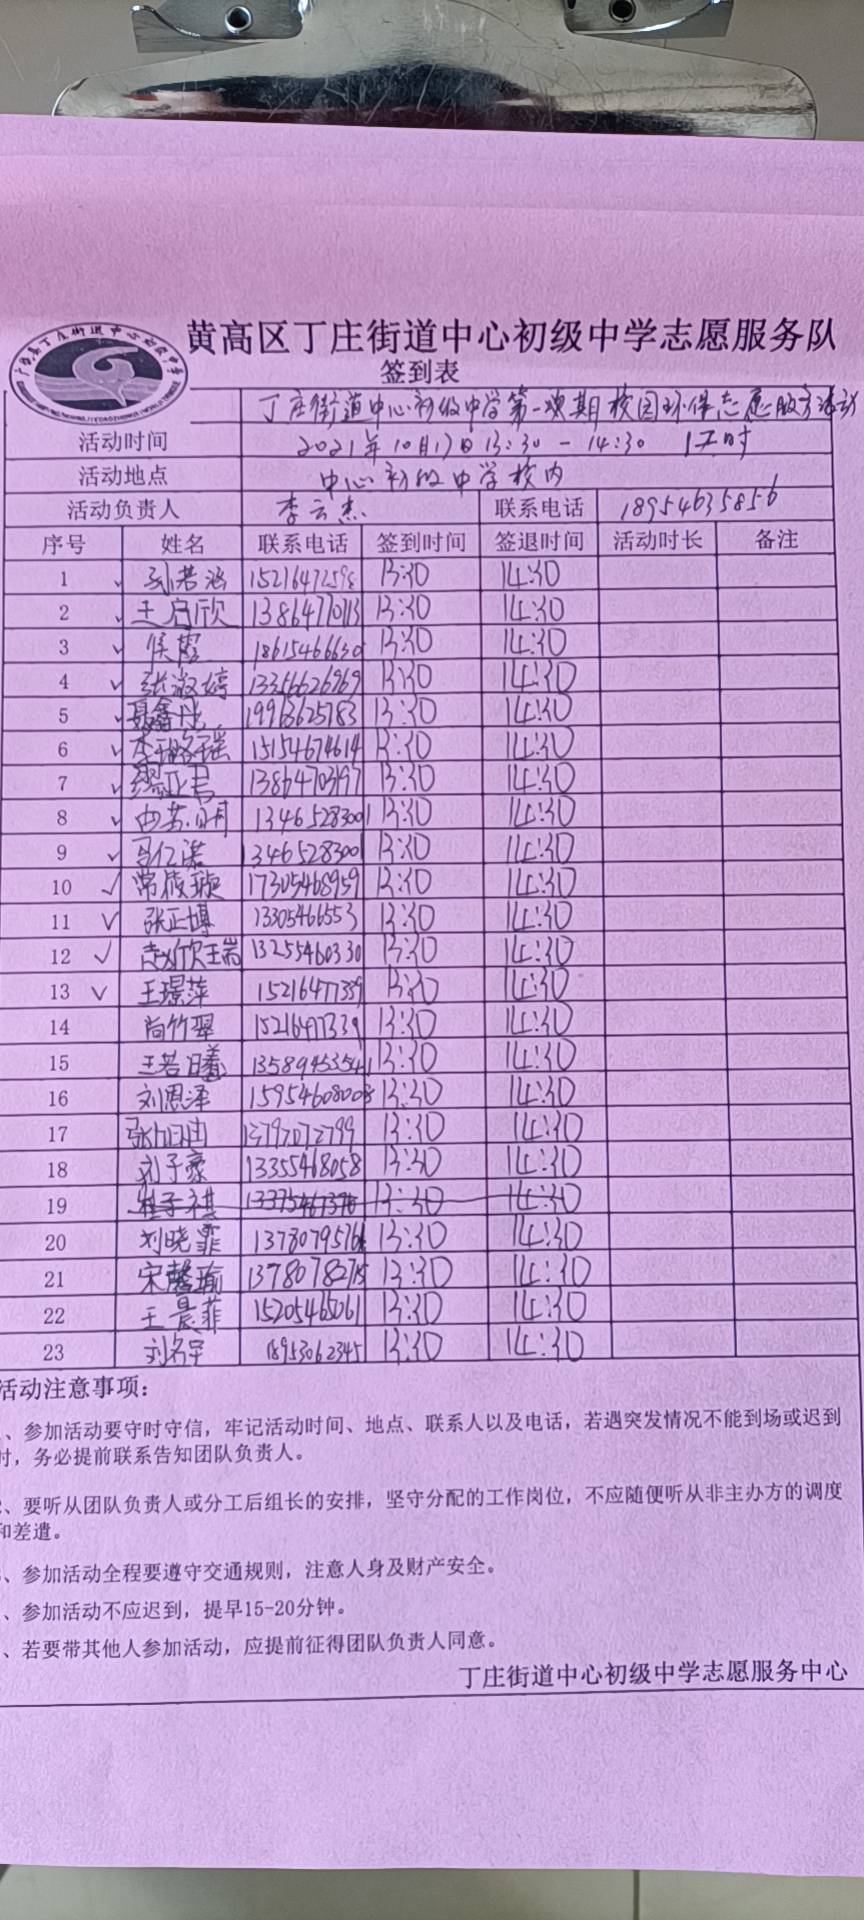 黄高区丁庄街道中心初级中学志愿服务队
签到表
丁庄街道中心初级中学第一期校园环保志愿服务活动
活动时间 2021年10月17日13:30-14:30 1小时
活动地点 中心初级中学校内
活动负责人 李云杰 联系电话 18954635856
序号 姓名 联系电话 签到时间 签退时间 活动时长 备注
1 孙若涵 15216472598 13:30 14:30
2 王启欣 13864770113 13:30 14:30
3 侯霞 18615466630 13:30 14:30
4 张淑婷 13366626969 13:30 14:30
5 聂鑫 19963625783 13:30 14:30
6 李璐瑶 15154674614 13:30 14:30
7 13864703197 13:30 14:30
8 曲苏明 13465283001 13:30 14:30
9 马亿诺 13465283001 13:30 14:30
10 常筱璇 17305468959 13:30 14:30
11 张正博 13305466553 13:30 14:30
12 赵欣瑞 13255460330 13:30 14:30
13 王璟萍 15216477339 13:30 14:30
14 尚竹翠 15216477339 13:30 14:30
15 王若曦 13589453541 13:30 14:30
16 刘恩泽 15954608008 13:30 14:30
17 13:30 14:30
18 刘子豪 13355468058 13:30 14:30
19 程子祺 13:30 14:30
20 刘晓霏 13780795761 13:30 14:30
21 宋馨瑜 13780782715 13:30 14:30
22 王晨菲 15205465061 13:30 14:30
23 刘名宇 18953062345 13:30 14:30
活动注意事项:
、参加活动要守时守信，牢记活动时间、地点、联系人以及电话，若遇突发情况不能到场或迟到
时，务必提前联系告知团队负责人。
、要听从团队负责人或分工后组长的安排，坚守分配的工作岗位，不应随便听从非主办方的调度
和差遣。
、参加活动全程要遵守交通规则，注意人身及财产安全。
、参加活动不应迟到，提早15-20分钟。
、若要带其他人参加活动，应提前征得团队负责人同意。
丁庄街道中心初级中学志愿服务中心